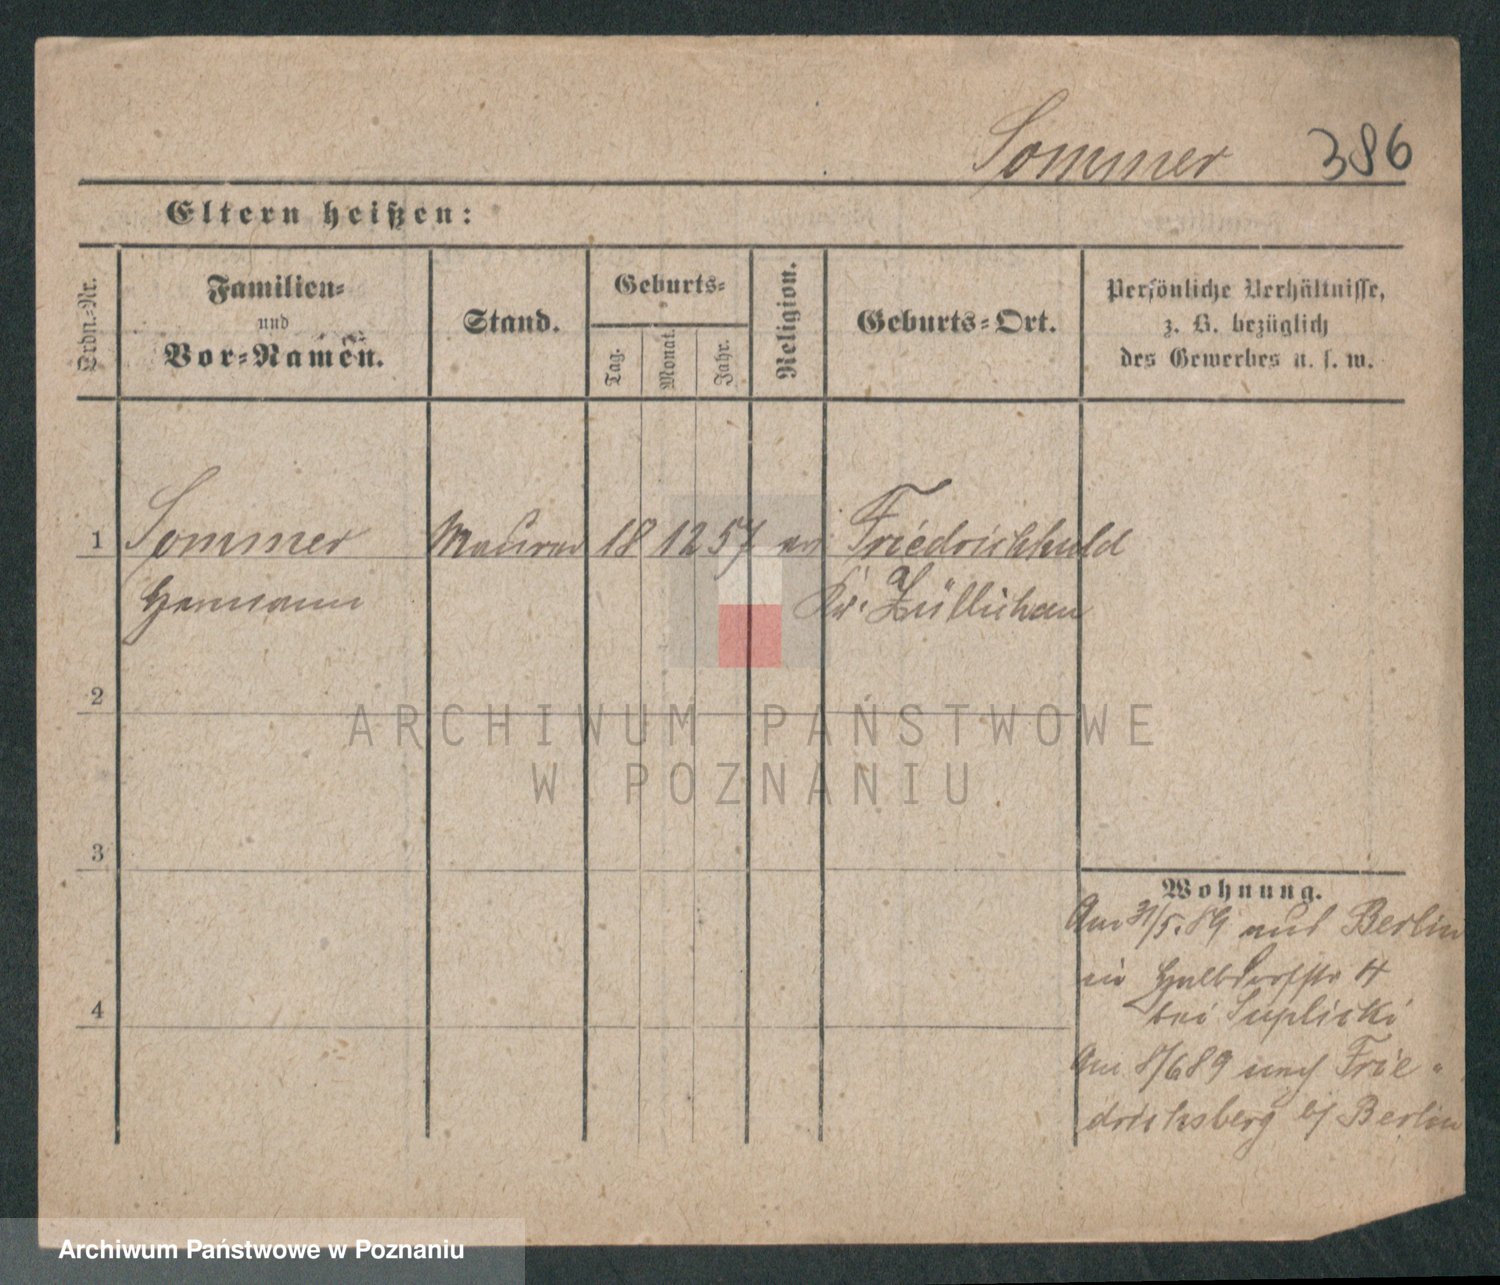 Sommer 386
Eltern heißen:
Ordn.-Nr.
Familien-
und
Vor-Namen.
Stand.
Geburts-
Tag.
Monat.
Jahr.
Religion.
Geburts-Ort.
Persönliche Verhältnisse,
z. B. bezüglich
des Gewerbes u. s. w.
1 Sommer Maurer 18 12 57 ev Friedrichhuld
Hermann Kr. Züllichau
2
ARCHIWUM PAŃSTWOWE
W POZNANIU
3
Wohnung.
Am 31/5.89 aus Berlin
in Halbdorfstr 4
bei
4
Am 8/6 89 nach Frie-
drichsberg b/ Berlin
Archiwum Państwowe w Poznaniu